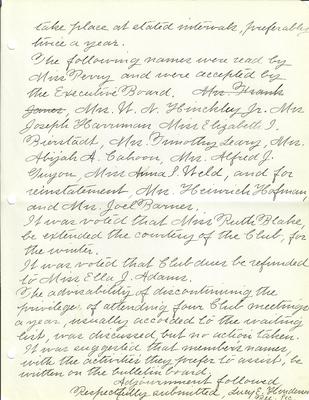 take place at stated intervals, preferably
twice a year.
The following names were read by
Miss Perry and were accepted by
the Executive Board. Mrs. Frank
Jones, Mrs. W. N. Hinckley Jr. Mrs
Joseph Harriman Miss Elizabeth I.
Bierstadt, Mrs. Timothy Leary, Mrs.
Abijah A. Cahoon, Mrs. Alfred J.
Guyon, Miss Anna S. Weld, and for
reinstatement, Mrs. Heinrich Hofman,
and Mrs. Joel Barner.
It was voted that Miss Ruth Blake,
be extended the courtesy of the Club, for
the winter.
It was voted that Club dues be refunded
to Miss Ella J. Adams.
The advisability of discontinuing the
privilege of attending four Club meetings
a year, usually accorded to the waiting
list, was discussed, but no action taken.
It was suggested that members names,
with the activities they prefer to assist, be
written on the bulletin board.
Adjournment followed
Respectfully submitted, Lucy C.
Sec.